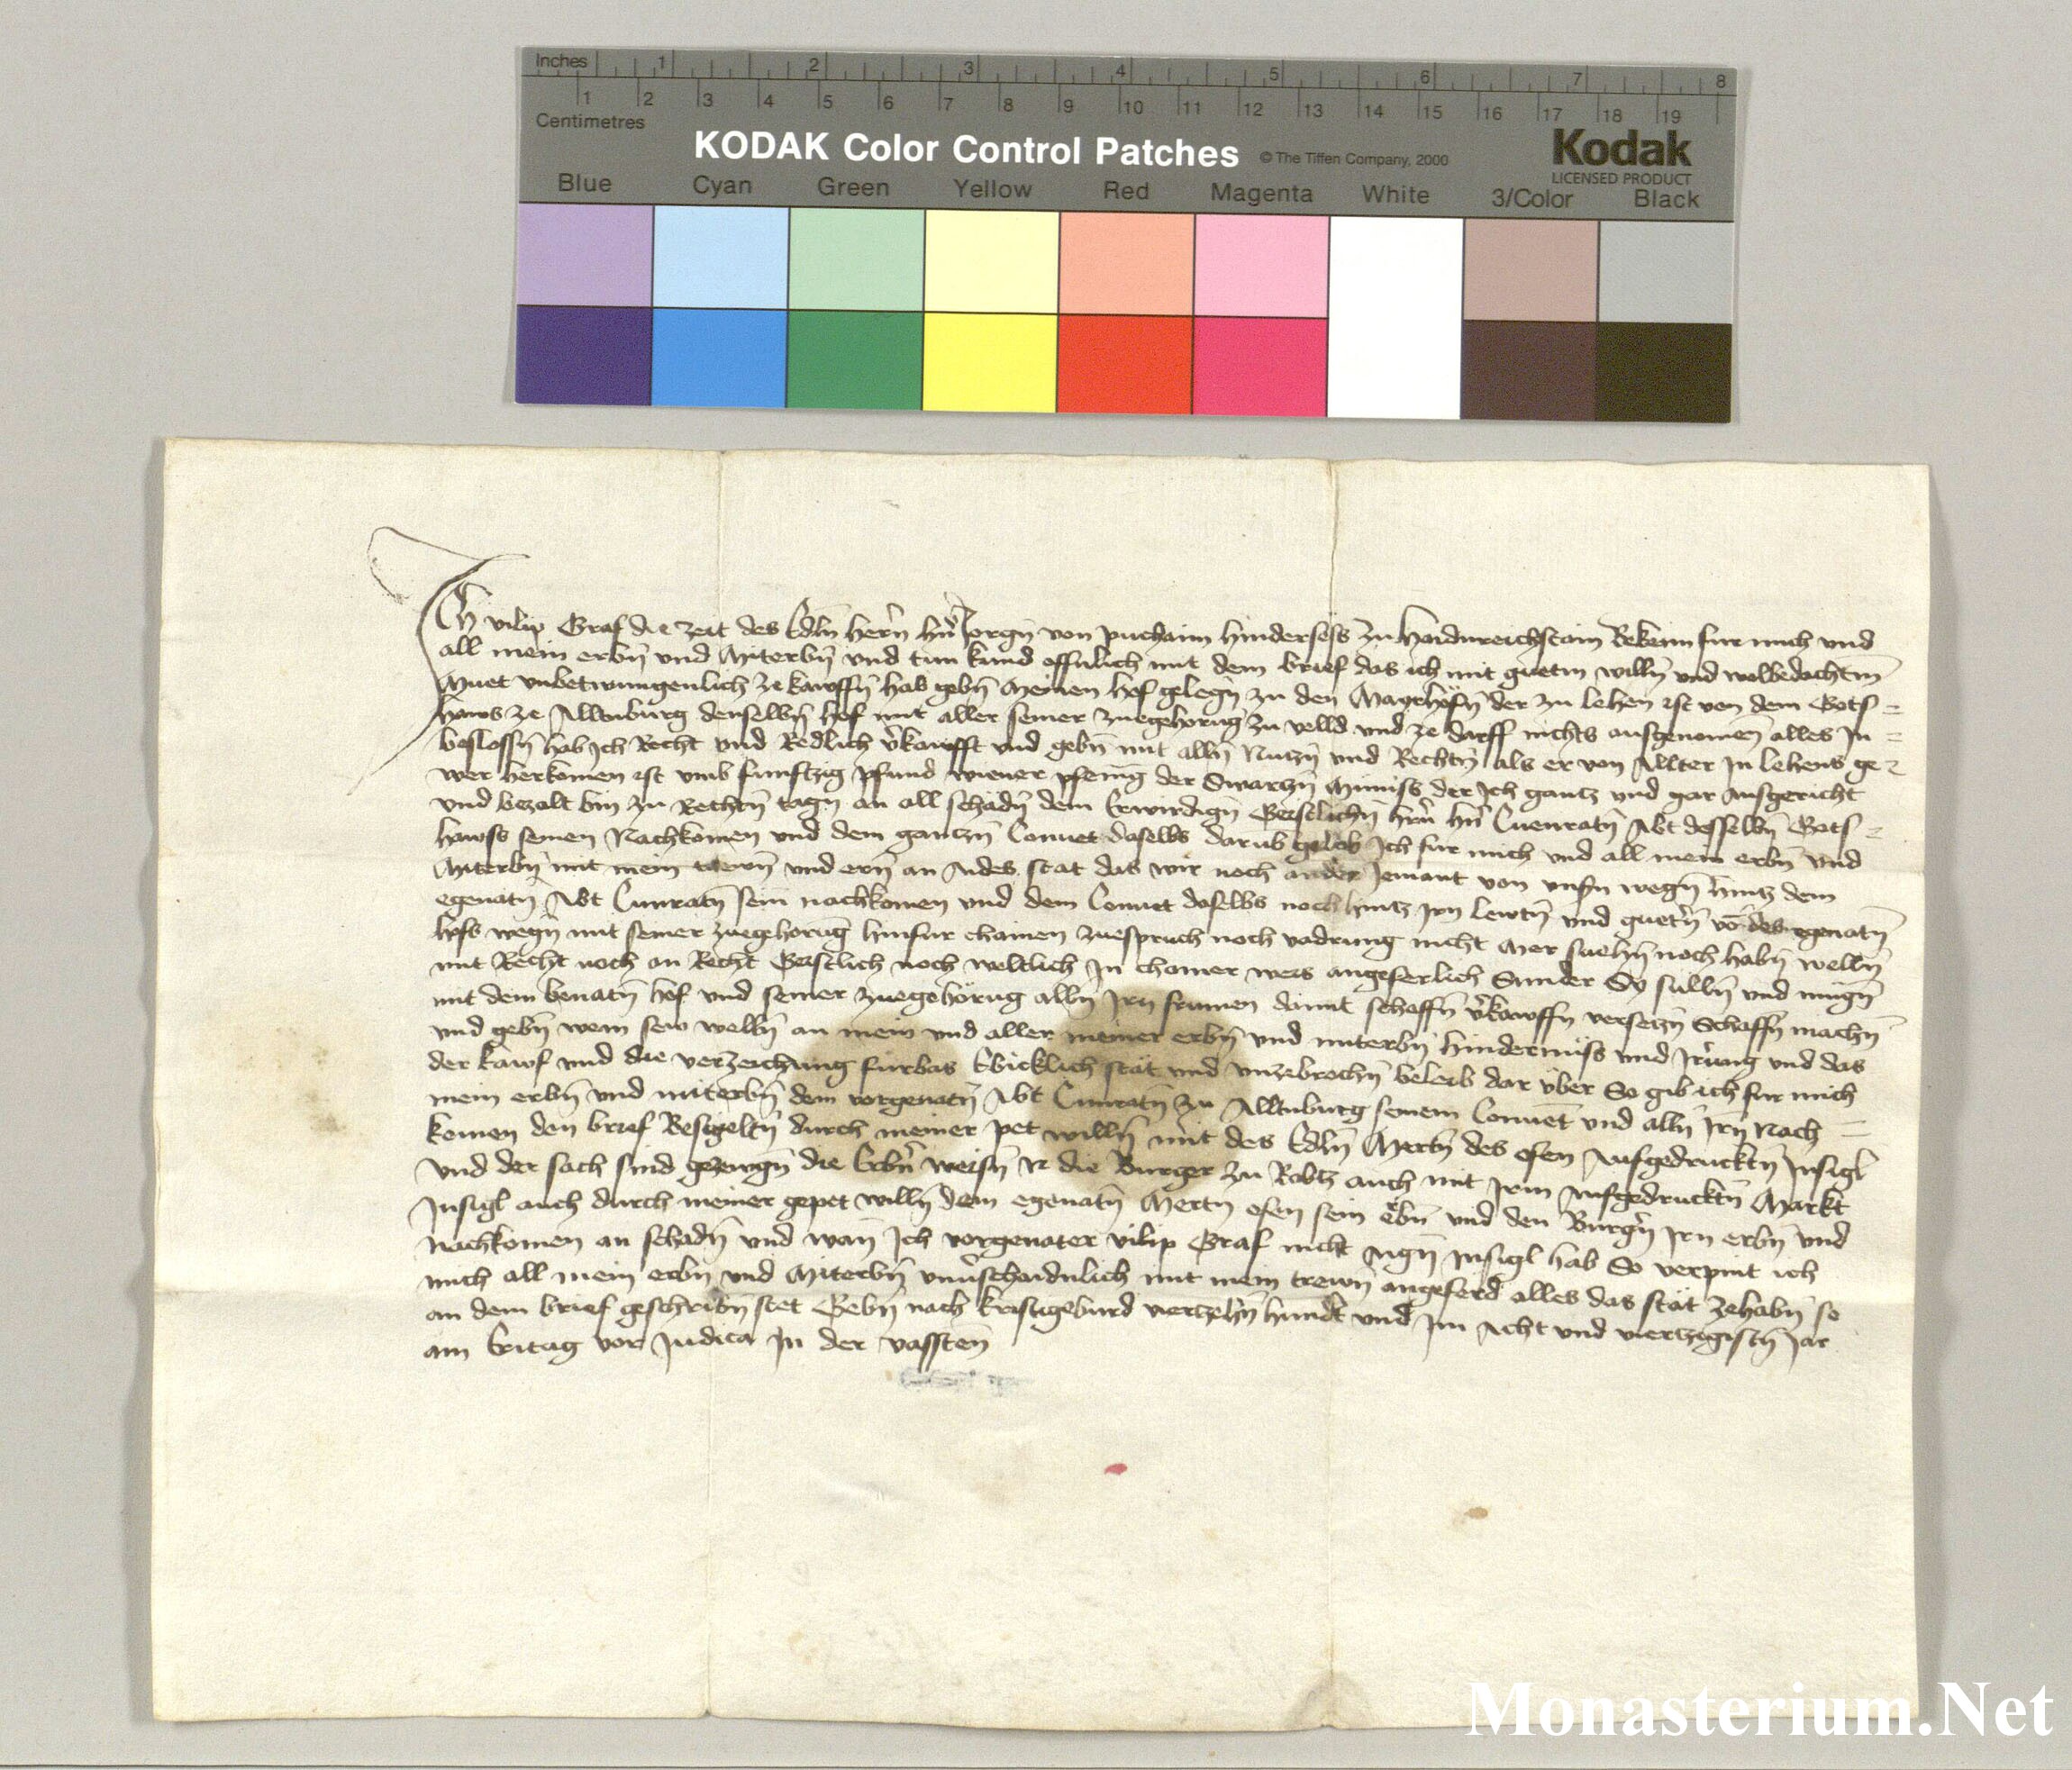 Inches 1 2 3 4 5 6 7 8
1 2 3 4 5 6 7 8 9 10 11 12 13 14 15 16 17 18 19
Centimetres
KODAK Color Control Patches © The Tiffen Company, 2000 Kodak
LICENSED PRODUCT
Blue Cyan Green Yellow Red Magenta White 3/Color Black
Ich vilip Graf die zeit des Edln hern hn Jorgn von puchaim hindersess zu haidnreichstain Bekenn fur mich und
all mein erbn und Miterbn und tun kund offnlich mit dem brief das ich mit guetm willn und wolbedachtm
Muet unbetwungenlich ze kauffn hab gebn Meinen hof gelegn zu den Mayrhöfn der zu lehen ist von dem Gots =
haws ze Alltnburg denselbn hof mit aller seiner zuegehorug zu velld und ze darff nichts ausgenomen alles In =
beslossn hab Ich Recht und Redlich vkaufft und gebn mit alln Nutzn und Rechtn als er von Allter In lehens ge =
wer herkomen ist umb funftzig pfund wiener pfenig der Swartzn Muniss der Ich gantz und gar Ausgericht
und bezalt bin zu Rechtn tagn an all schadn dem Erwirdign Geistlichn hrn hn Cuenratn Abt desselbn Gots =
hawss seinen Nachkomen und dem gantzn Conuet daselbs darub gelob Ich fur mich und all mein erbn und
Miterbn mit mein trewn und ern an Aides stat das wir noch ander Jemant von unsn wegn hintz dem
egenatn Abt Cunratn sein nachkomen und dem Conuet daselbs noch hintz Irn lewtn und guetn vo des egenatn
hofs wegn mit seiner zuegehorug hinfur chainen zuespruch noch vodrung nicht Mer suehn noch habn welln
mit Recht noch an Recht Geistlich noch weltlich In chainer weis angeferlich Sunder Sy sulln und mugn
mit dem benatn hof und seiner zuegehörug alln Irn frumen damit schaffn vkauffn versetzn Schaffn machn
und gebn wem sew welln an mein und aller meiner erbn und miterbn hindernuss und Irrung und das
der kauf und die verzeichung furbas Ebicklich stät und unzebrochn beleib dar uber So gib ich fur mich
mein erbn und miterbn dem vorgenatn Abt Cunratn zu Alltnburg seinem Conuet und alln Irn Nach =
komen den brief Besigeltn durch meiner pet willn mit des Edln Mertn des ofen Aufgedrucktn Insigl
und der sach sind gezeugn die Erbn weisn N die Burger zu Rabtz auch mit Irm Aufgedrucktn Markt
Insigl auch durch meiner gepet willn dem egenatn Mertn ofen sein ebn und den Burgn Irn erbn und
nachkomen an schadn und wan Ich vorgenater vilip Graf nicht Aign Insigl hab So verpint ich
mich all mein erbn und Miterbn unuschaidnlich mit mein trewn angeferd alles das stät zehabn so
an dem brief geschribn stet Gebn nach kristigeburd viertzehn hundt und Im Acht und viertzigistn Jar
am Eritag vor Judica In der vassten
Monasterium.Net